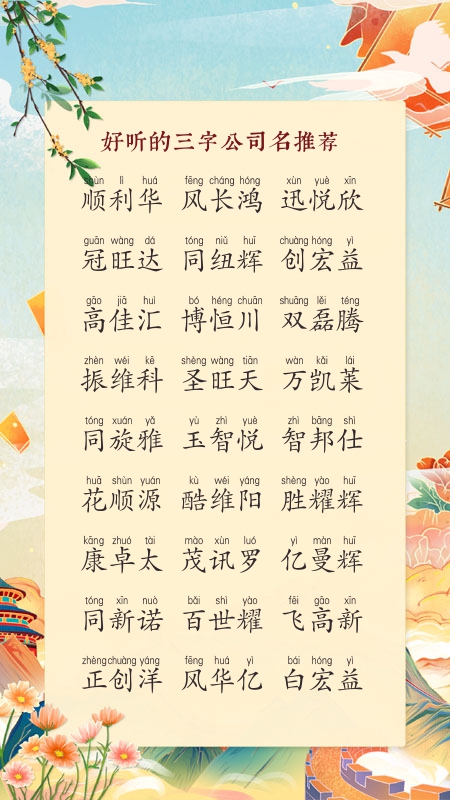 好听的三字公司名推荐
shùn lì huá fēng cháng hóng xùn yuè xīn
顺利华 风长鸿 迅悦欣
guān wàng dá tóng niǔ huī chuàng hóng yì
冠旺达 同纽辉 创宏益
gāo jiā huì bó héng chuān shuāng lěi téng
高佳汇 博恒川 双磊腾
zhèn wéi kē shèng wàng tiān wàn kǎi lái
振维科 圣旺天 万凯莱
tóng xuán yǎ yù zhì yuè zhì bāng shì
同旋雅 玉智悦 智邦仕
huā shùn yuán kù wéi yáng shèng yào huī
花顺源 酷维阳 胜耀辉
kāng zhuó tài mào xùn luó yì màn huī
康卓太 茂讯罗 亿曼辉
tóng xīn nuò bǎi shì yào fēi gāo xīn
同新诺 百世耀 飞高新
zhèng chuàng yáng fēng huá yì bái hóng yì
正创洋 风华亿 白宏益